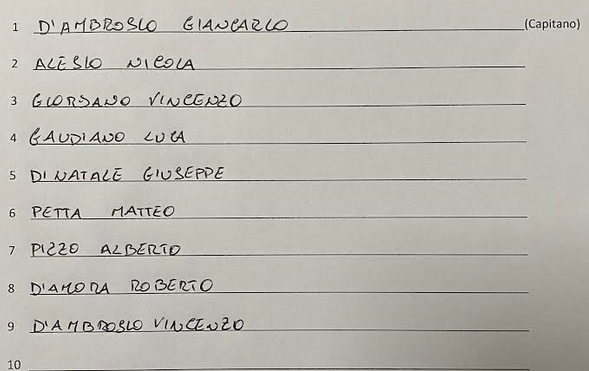 1 D'AMBROSIO GIANCARLO (Capitano)
2 ALESIO NICOLA
3 GIORDANO VINCENZO
4 GAUDIANO LUCA
5 DI NATALE GIUSEPPE
6 PETTA MATTEO
7 PIZZO ALBERTO
8 D'AMORA ROBERTO
9 D'AMBROSIO VINCENZO
10